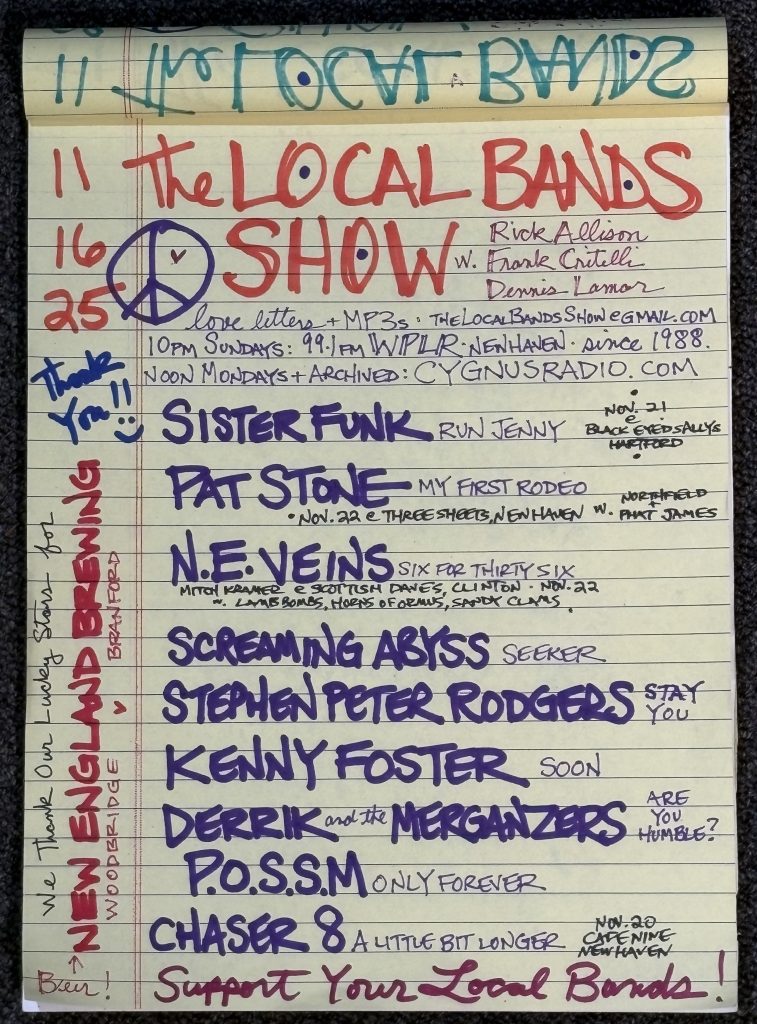 11 The LOCAL BANDS
11 The LOCAL BANDS
16 SHOW w. Rick Allison
Frank Critelli
25 Dennis Lamar
love letters + MP3s · THELOCALBANDSSHOW@GMAIL.COM
10PM SUNDAYS: 99.1FM WPLR · NEW HAVEN · since 1988.
NOON MONDAYS + ARCHIVED: CYGNUSRADIO.COM
Thank
You!!
SISTER FUNK RUN JENNY
NOV. 21
@
BLACK EYED SALLYS
HARTFORD
PAT STONE MY FIRST RODEO
· NOV. 22 @ THREE SHEETS, NEW HAVEN W. NORTHFIELD
+
PHAT JAMES
N.E. VEINS SIX FOR THIRTY SIX
MITCH KRAMER @ SCOTTISH DAVES, CLINTON · NOV. 22
w. LAMB BOMBS, HORNS OF ORMUS, SANDY CLAMS.
SCREAMING ABYSS SEEKER
STEPHEN PETER RODGERS STAY
YOU
KENNY FOSTER SOON
DERRIK and the MERGANZERS ARE
YOU
HUMBLE?
P.O.S.S.M ONLY FOREVER
CHASER 8 A LITTLE BIT LONGER
NOV. 20
CAFE NINE
NEW HAVEN
Support Your Local Bands!
We Thank Our Lucky Stars for
NEW ENGLAND BREWING
WOODBRIDGE BRANFORD
Beer!